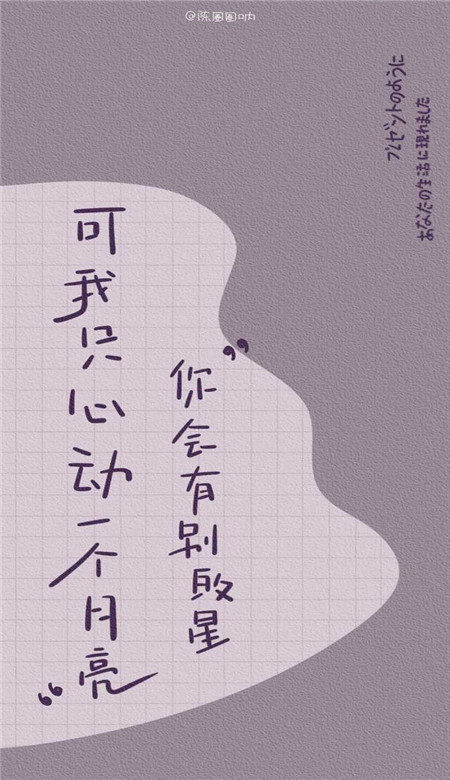 @陈圈圈呐
プレゼントのように
あなたの生活に現れました
”你会有别星
可我只心动一个月亮“